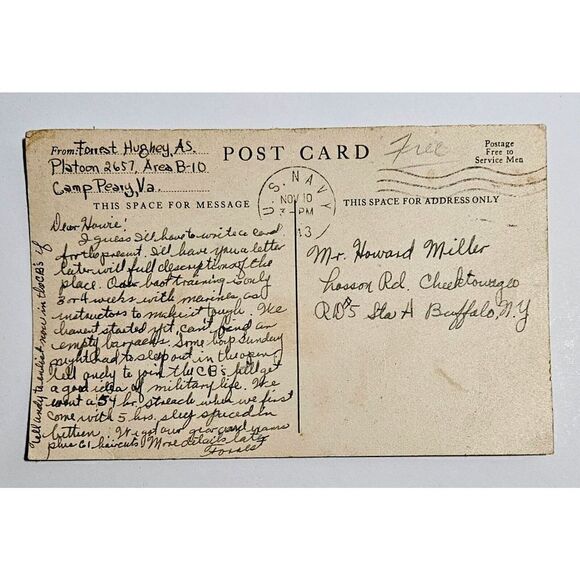 From: Forrest Hughey, A.S.
Platoon 2657, Area B-10
Camp Peary, Va.
POST CARD
Free
Postage
Free to
Service Men
U.S. NAVY
NOV 10
3-PM
43
THIS SPACE FOR MESSAGE
THIS SPACE FOR ADDRESS ONLY
Dear Howie!
I guess I'll have to write a card
for the present. I'll have you a letter
later with full descriptions of the
place. Our boot training is only
3 or 4 weeks with marines as
instructors to make it tough. We
haven't started yet, can't find an
empty barracks. Some Sunday
night had to sleep out in the open.
Tell Andy to join the CB's, he'll get
a good idea of military life. We
went a 54 hr. streach when we first
come with 5 hrs. sleep spaced in
between. We got our gear and
plus G.I. haircuts. More details later
Tell Andy to enlist now in the CB's if
Mr. Howard Miller
Losson Rd. Cheektowago
RD#5 Sta H Buffalo, N.Y